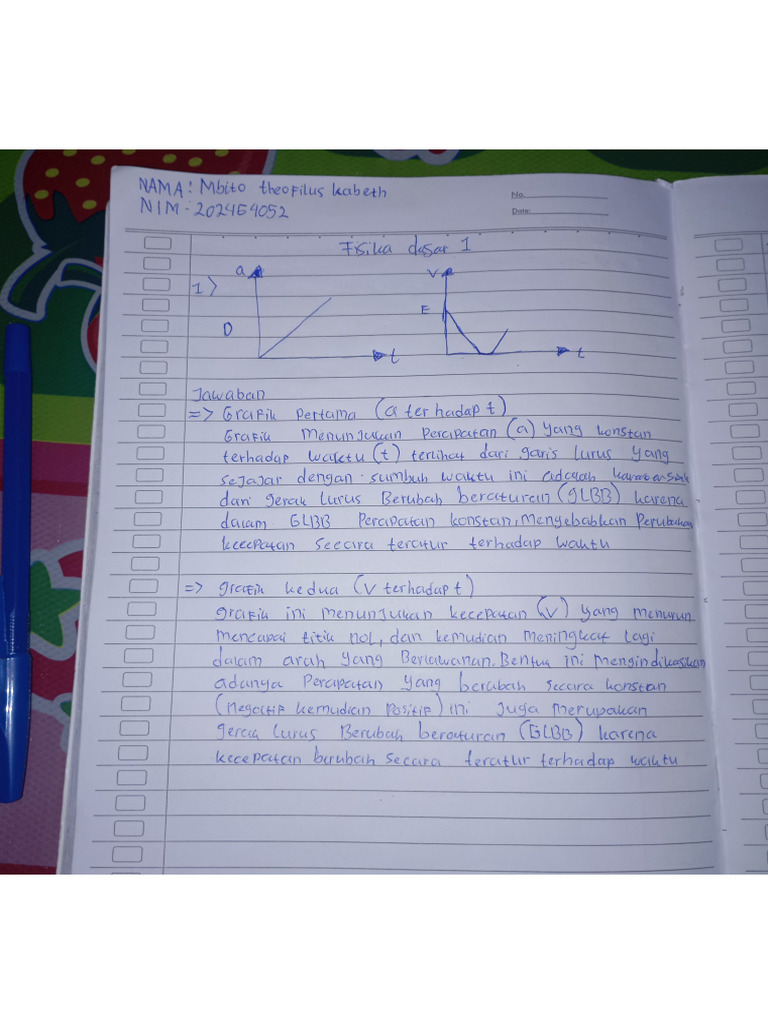 NAMA: Mbito theofilus kabeth
NIM: 202454052
No.
Date:
Fisika dasar 1
1) a D t
V E t
Jawaban
=> Grafik Pertama (a terhadap t)
Grafik Menunjukan Percepatan (a) yang konstan
terhadap waktu (t) terlihat dari garis lurus yang
sejajar dengan sumbuh waktu ini adalah
dari gerak lurus Berubah beraturan (GLBB) karena
dalam GLBB Percepatan konstan, Menyebabkan Perubahan
kecepatan secara teratur terhadap waktu
=> grafik kedua (V terhadap t)
grafik ini menunjukan kecepatan (V) yang menurun
mencapai titik nol, dan kemudian meningkat lagi
dalam arah yang Berlawanan. Bentuk ini mengindikasikan
adanya Percepatan yang berubah secara konstan
(negatif kemudian Positif) ini Juga merupakan
gerak lurus Berubah beraturan (GLBB) karena
kecepatan berubah secara teratur terhadap waktu